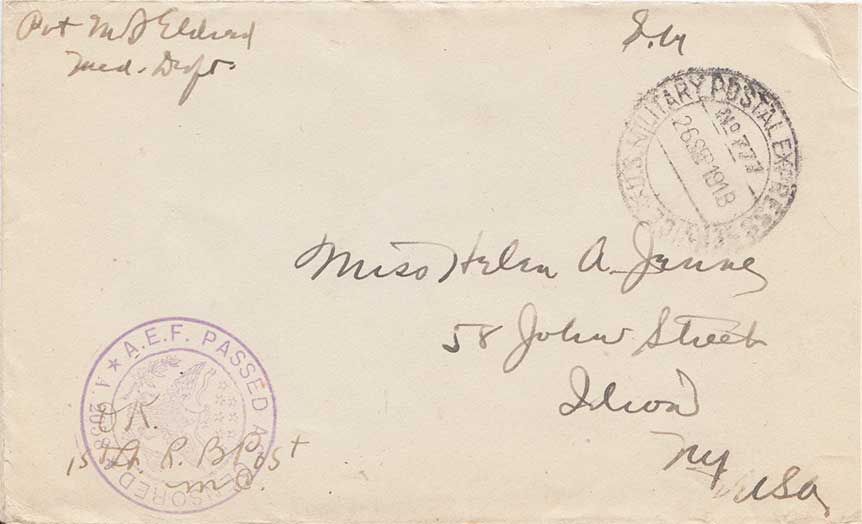 Pvt M J Eldred
Med. Dept.
S.M
U.S. MILITARY POSTAL EXPRESS
No 777
26 SEP 1918
Miss Helen A. Janney
58 John Street
Ilion
NY
USA
A.E.F. PASSED AS CENSORED
A.
OK.
1st Lt. R. B. Post